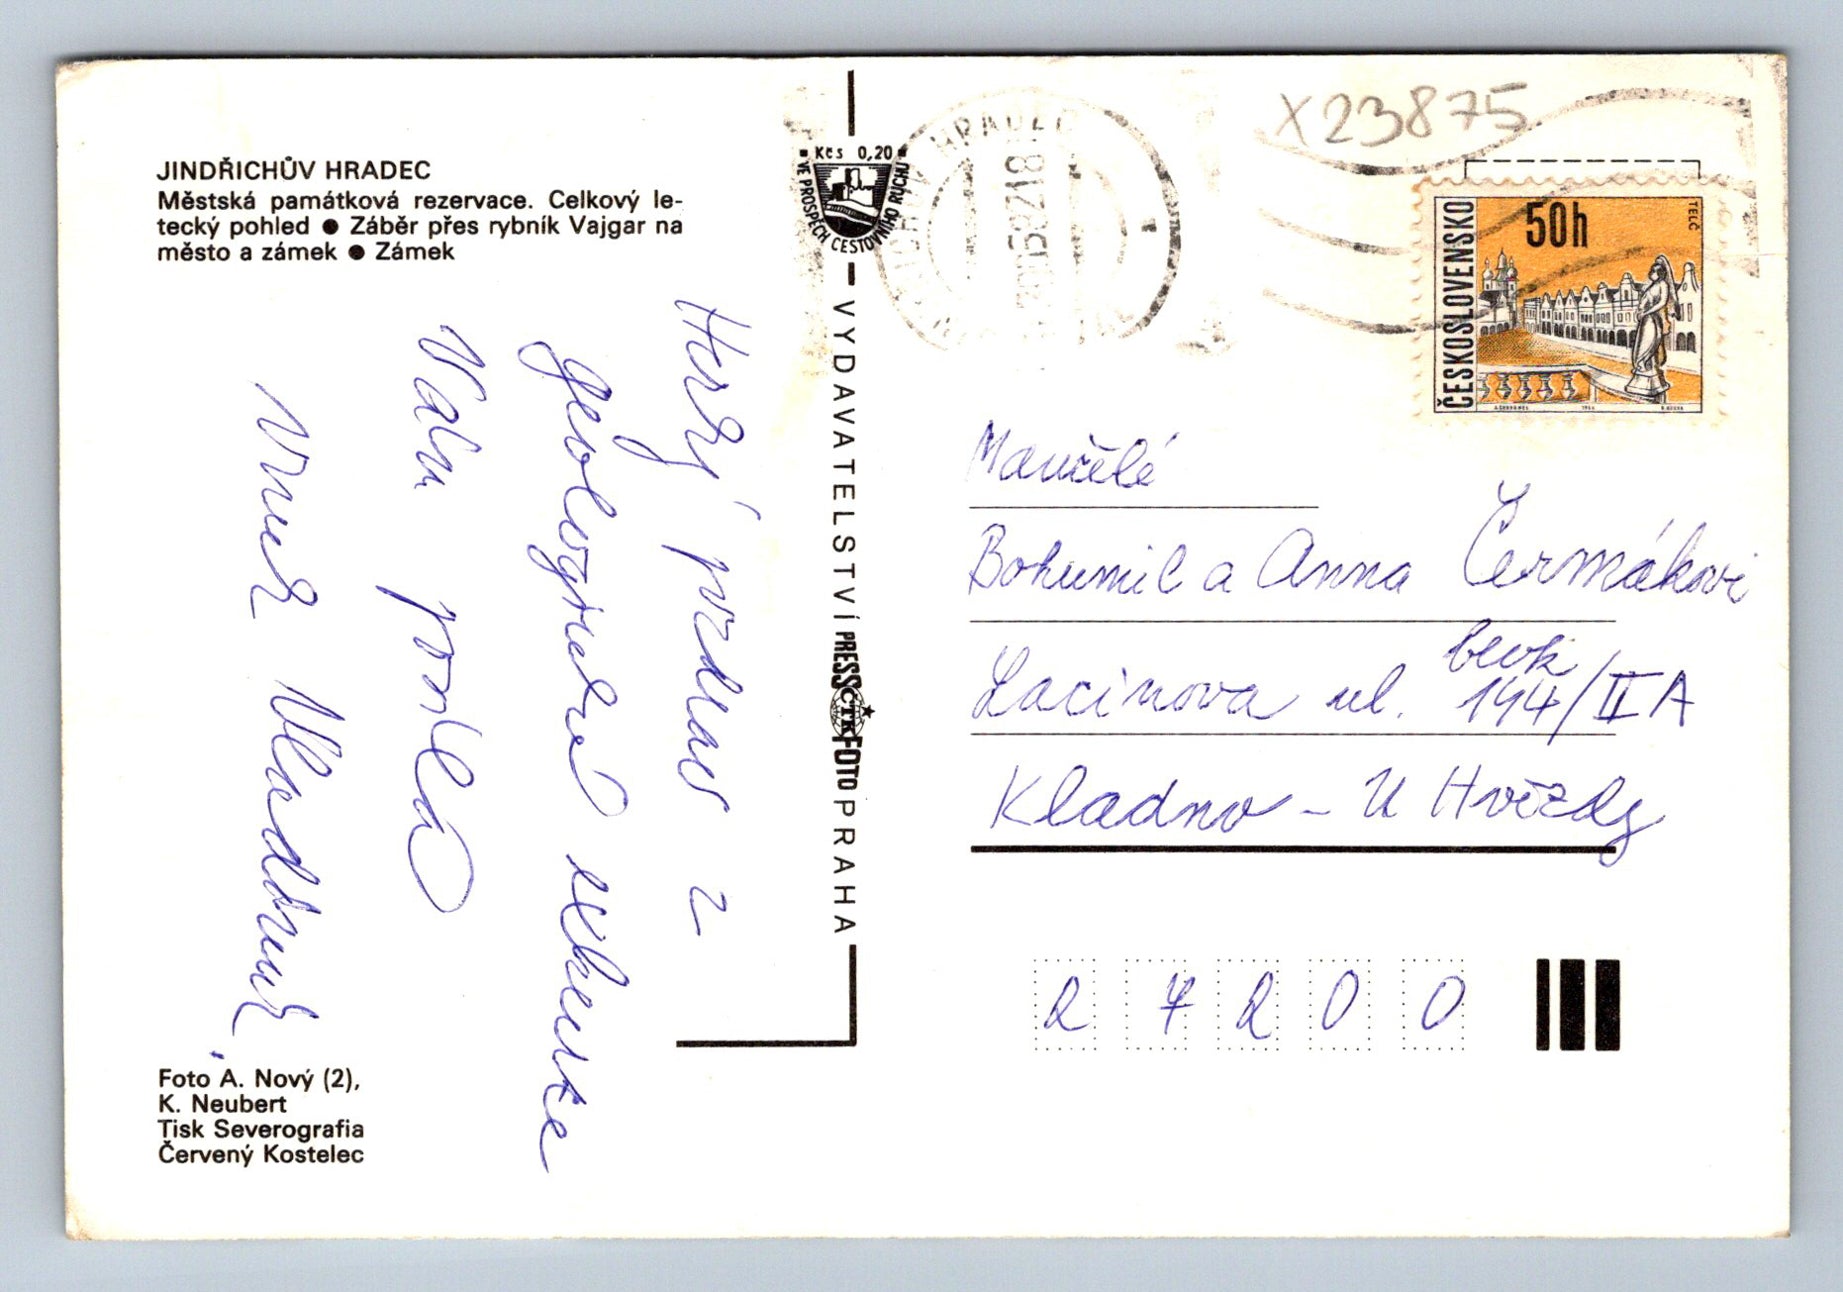 JINDŘICHŮV HRADEC
Městská památková rezervace. Celkový le-
tecký pohled ● Záběr přes rybník Vajgar na
město a zámek ● Zámek
Hezký pozdrav z
geologické exkurze
Vám posílá
vnuk Vlastimil
Foto A. Nový (2),
K. Neubert
Tisk Severografia
Červený Kostelec
Kčs 0,20
VE PROSPĚCH CESTOVNÍHO RUCHU
VYDAVATELSTVÍ PRESSFOTO PRAHA
ČTK
HRADEC
X23875
50h
ČESKOSLOVENSKO
TELČ
Manželé
Bohumil a Anna Čermákovi
blok
Lacinova ul. 194/II A
Kladno - U Hvězdy
2 7 2 0 0